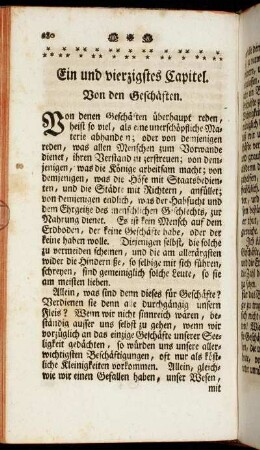 280
Ein und vierzigstes Capitel.
Von den Geschäften.
Von denen Geschäften überhaupt reden,
heist so viel, als eine unerschöpfliche Ma-
terie abhandeln; oder von demjenigen
reden, was allen Menschen zum Vorwande
dienet, ihren Verstand zu zerstreuen; von dem-
jenigen, was die Könige arbeitsam macht; von
demjenigen, was die Höfe mit Staatsbedien-
ten, und die Städte mit Richtern, anfüllet;
von demjenigen endlich, was der Habsucht und
dem Ehrgeitze des menschlichen Geschlechts, zur
Nahrung dienet. Es ist kein Mensch auf dem
Erdboden, der keine Geschäfte habe, oder der
keine haben wolle. Diejenigen selbst, die solche
zu vermeiden scheinen, und die am allerärgsten
wider die Hindernisse, so selbige mit sich führen,
schreyen, sind gemeiniglich solche Leute, so sie
am meisten lieben.
Allein, was sind denn dieses für Geschäfte?
Verdienen sie denn alle durchgängig unsern
Fleis? Wenn wir nicht sinnreich wären, be-
ständig ausser uns selbst zu gehen, wenn wir
vorzüglich an das einzige Geschäfte unserer See-
ligkeit gedächten, so würden uns unsere aller-
wichtigsten Beschäftigungen, oft nur als köst-
liche Kleinigkeiten vorkommen. Allein, gleich-
wie wir einen Gefallen haben, unser Wesen,
mit